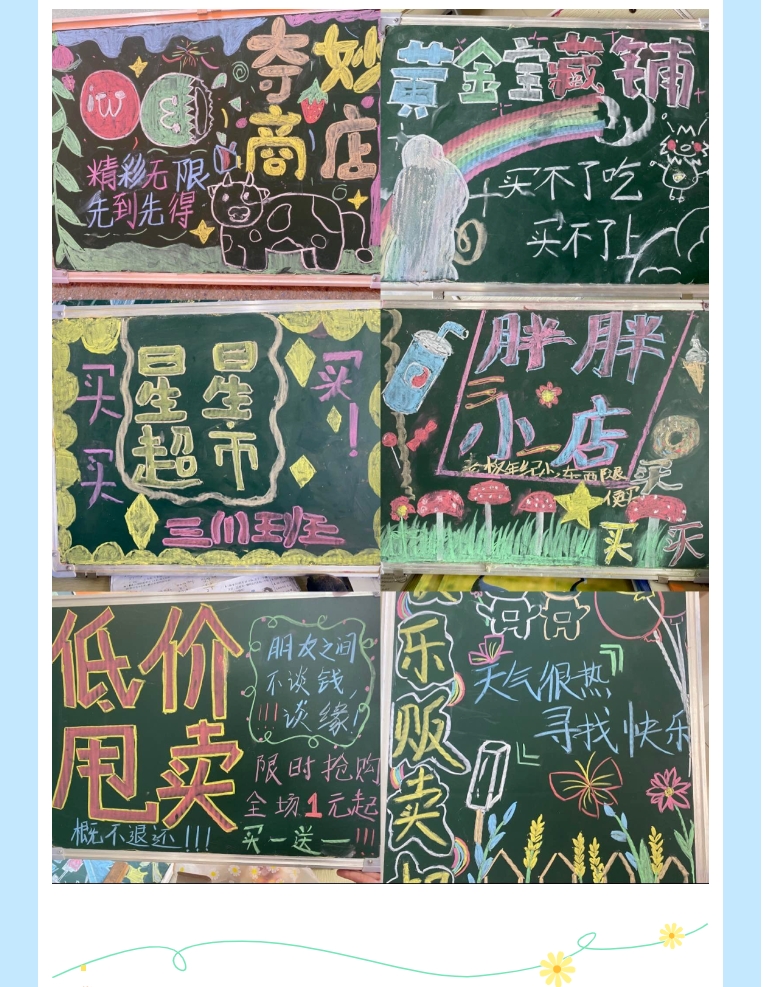 奇妙
商店
精彩无限
先到先得
黄金宝藏铺
买不了吃
买不了上
星星
超市
买
买
买！
三(1)班
胖胖
小店
买
买
买
低价
甩卖
概不退还!!!
朋友之间
不谈钱,
!!!谈缘!
限时抢购
全场1元起
买一送一!!!
乐贩卖
天气很热
寻找快乐